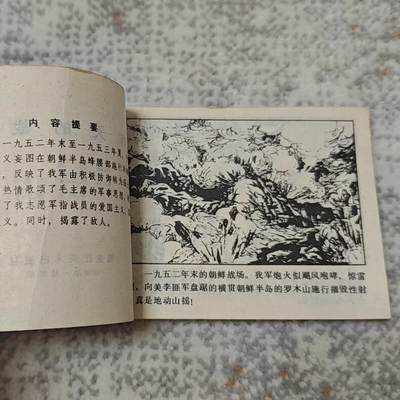 内容提要
一九五二年末至一九五三年夏，
义妄图在朝鲜半岛蜂腰部
，反映了我军由积极防御转
热情歌颂了毛主席的军事思想，
了我志愿军指战员的爱国主义、
义。同时，揭露了敌人
一九五二年末的朝鲜战场。我军炮火似飓风咆哮，惊雷
，向美李匪军盘踞的横贯朝鲜半岛的罗木山施行摧毁性射
真是地动山摇！